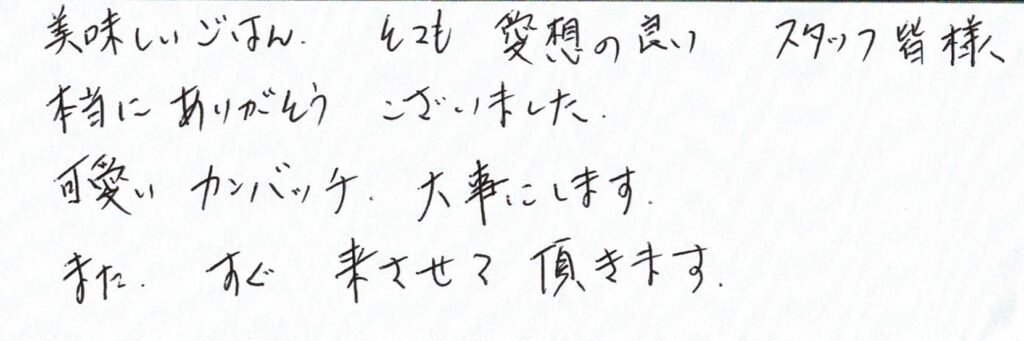 美味しいごはん. とても 愛想の良い スタッフ皆様、
本当に ありがとう ございました.
可愛い カンバッチ. 大事にします.
また. すぐ 来させて 頂きます.